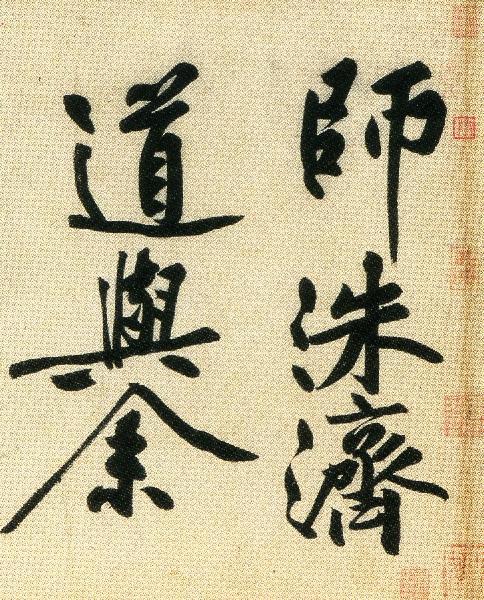 師洙濟
道與余